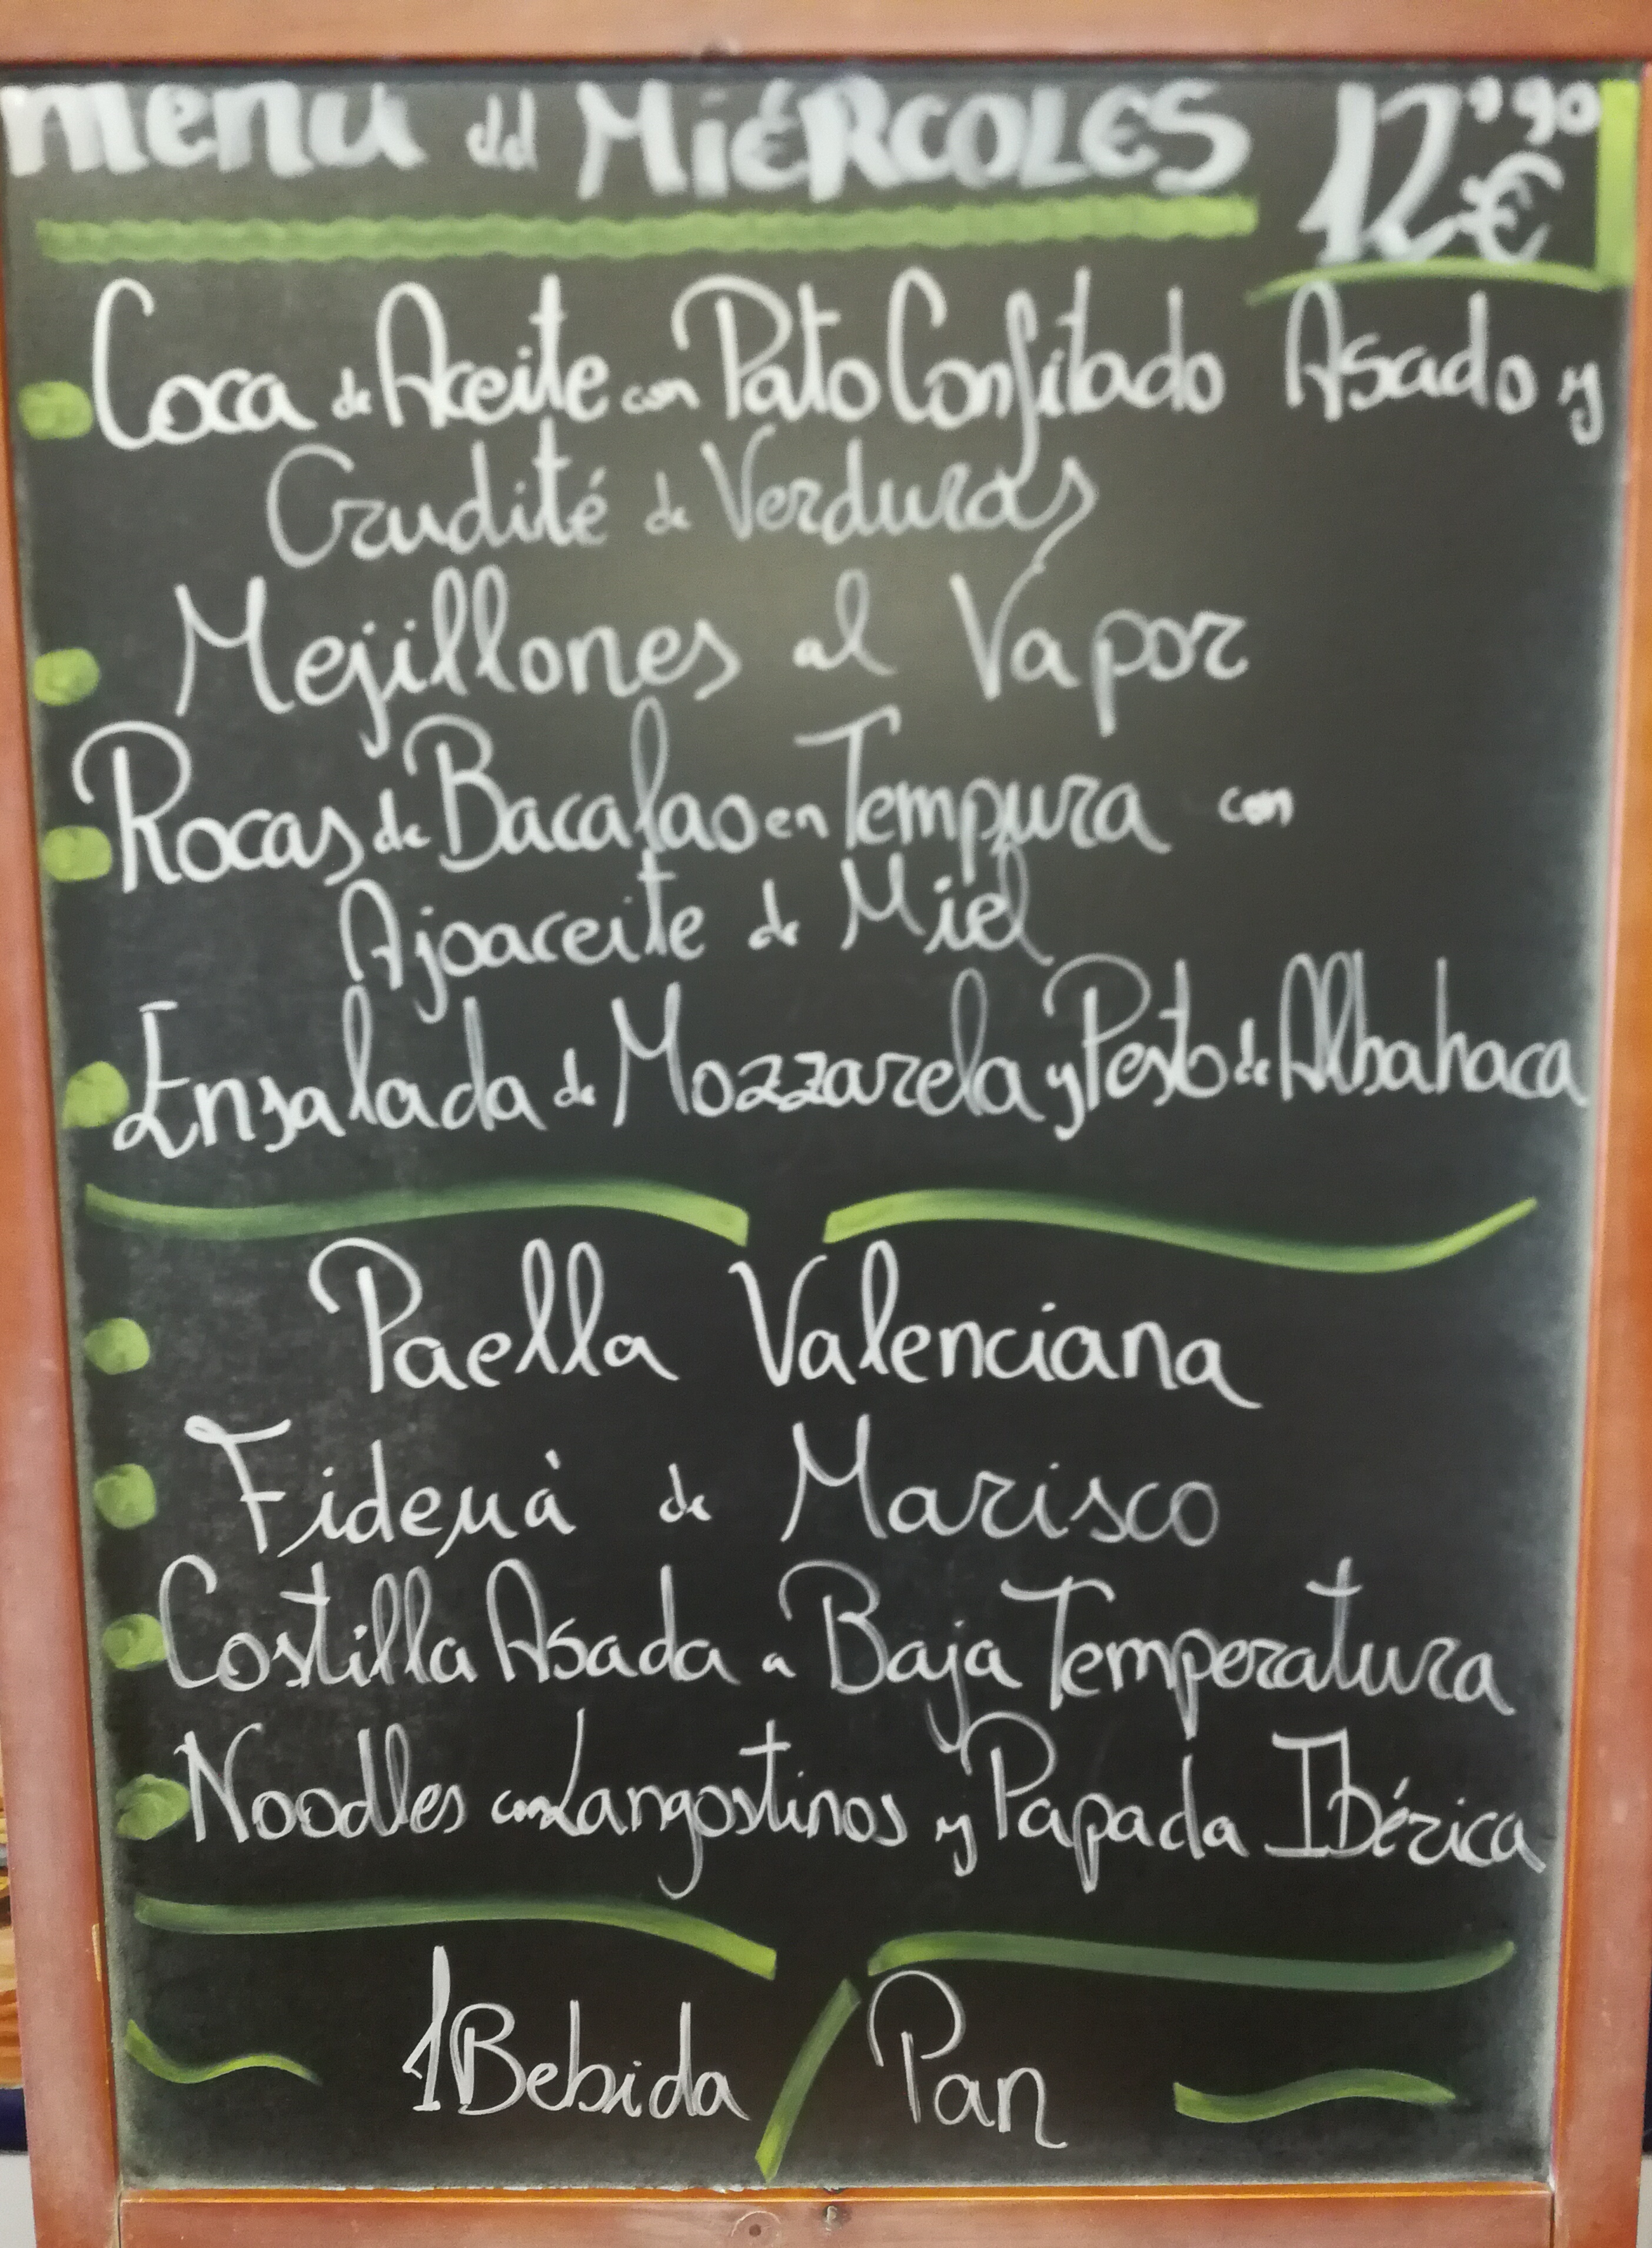 Menú del MIÉRCOLES 12'90 €
Coca de Aceite con Pato Confitado Asado y
Crudité de Verduras
Mejillones al Vapor
Rocas de Bacalao en Tempura con
Ajoaceite de Miel
Ensalada de Mozzarela y Pesto de Albahaca
Paella Valenciana
Fideuà de Marisco
Costilla Asada a Baja Temperatura
Noodles con Langostinos y Papada Ibérica
1 Bebida / Pan